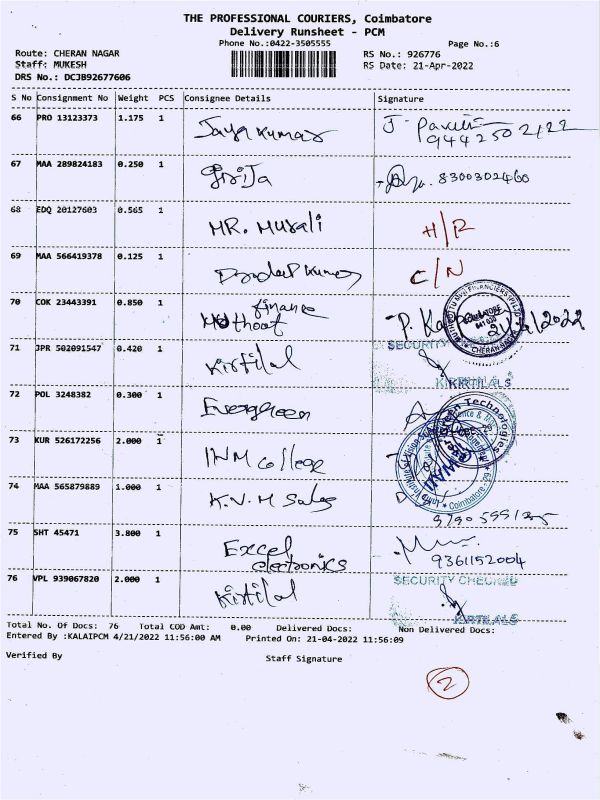 THE PROFESSIONAL COURIERS, Coimbatore
Delivery Runsheet - PCM
Phone No.:0422-3505555
Page No.:6
Route: CHERAN NAGAR
RS No.: 926776
Staff: MUKESH
RS Date: 21-Apr-2022
DRS No.: DCJB92677606
S No Consignment No Weight PCS Consignee Details Signature
66 PRO 13123373 1.175 1 Jaya kumar J. 9442502122
67 MAA 289824183 0.250 1 GriJa 8300302460
68 EDQ 20127603 0.565 1 MR. Murali H/R
69 MAA 566419378 0.125 1 Kumar C/N
70 COK 23443391 0.850 1 Muthoot finance P.
SECURITY
71 JPR 502091547 0.420 1 Kirtilal
KIRTILALS
72 POL 3248382 0.300 1 Evergreen
73 KUR 526172256 2.000 1 INM College
74 MAA 565879889 1.000 1 K.V.M Sales
75 SHT 45471 3.800 1 Excel electronics 9361152004
SECURITY CHECKED
76 VPL 939067820 2.000 1 Kirtilal KIRTILALS
Total No. Of Docs: 76 Total COD Amt: 0.00 Delivered Docs: Non Delivered Docs:
Entered By :KALAIPCM 4/21/2022 11:56:00 AM Printed On: 21-04-2022 11:56:09
Verified By Staff Signature
2